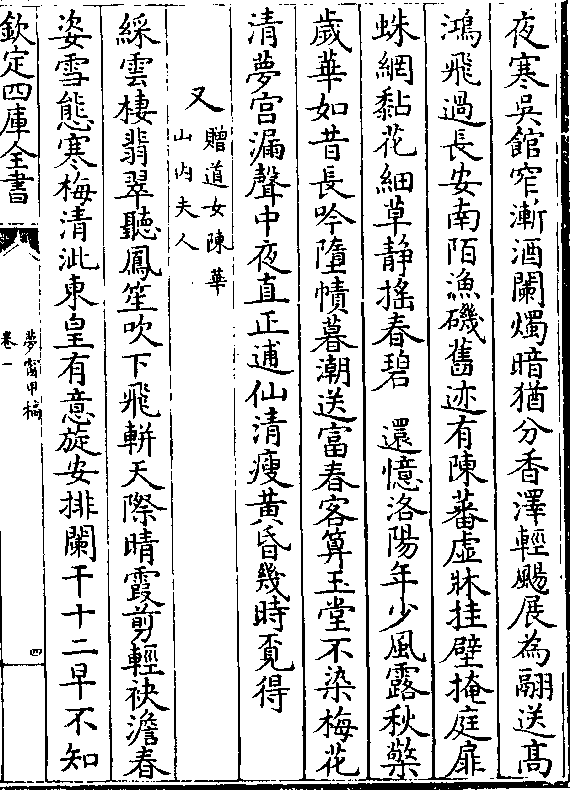 夜寒吳館窄漸酒闌燭暗猶分香澤輕颺展為翮送髙
鴻飛過長安南陌漁磯舊迹有陳蕃虛牀挂壁掩庭扉
蛛網黏花細草静揺春碧　還憶洛陽年少風露秋檠
歲華如昔長吟墮幘暮潮送富春客算玉堂不染梅花
清夢宫漏聲中夜直正逋仙清瘦黄昏幾時覔得
又
贈道女陳華
山内夫人
綵雲棲翡翠聽鳳笙吹下飛軿天際晴霞剪輕袂澹春
姿雪態寒梅清泚東皇有意旋安排闌干十二早不知
欽定四庫全書
夢窗甲稿
卷一
四